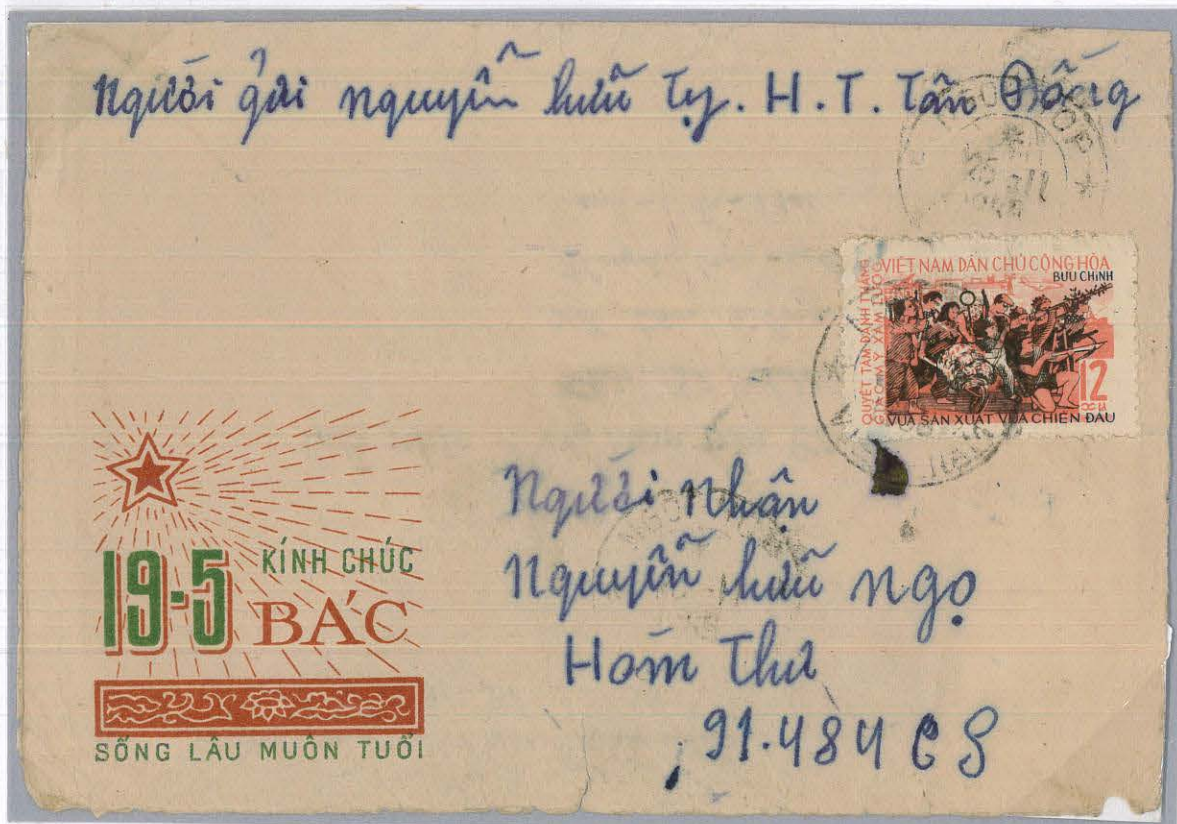 Người gửi nguyễn hữu Tỵ. H. T. Tân Đồng
VIỆT NAM DÂN CHỦ CỘNG HÒA
BƯU CHÍNH
QUYẾT TÂM ĐÁNH THẮNG
GIẶC MỸ XÂM LƯỢC
12
xu
VỪA SẢN XUẤT VỪA CHIẾN ĐẤU
19-5 KÍNH CHÚC
BÁC
SỐNG LÂU MUÔN TUỔI
Người Nhận
Nguyễn hữu ngọ
Hòm Thư
91.484